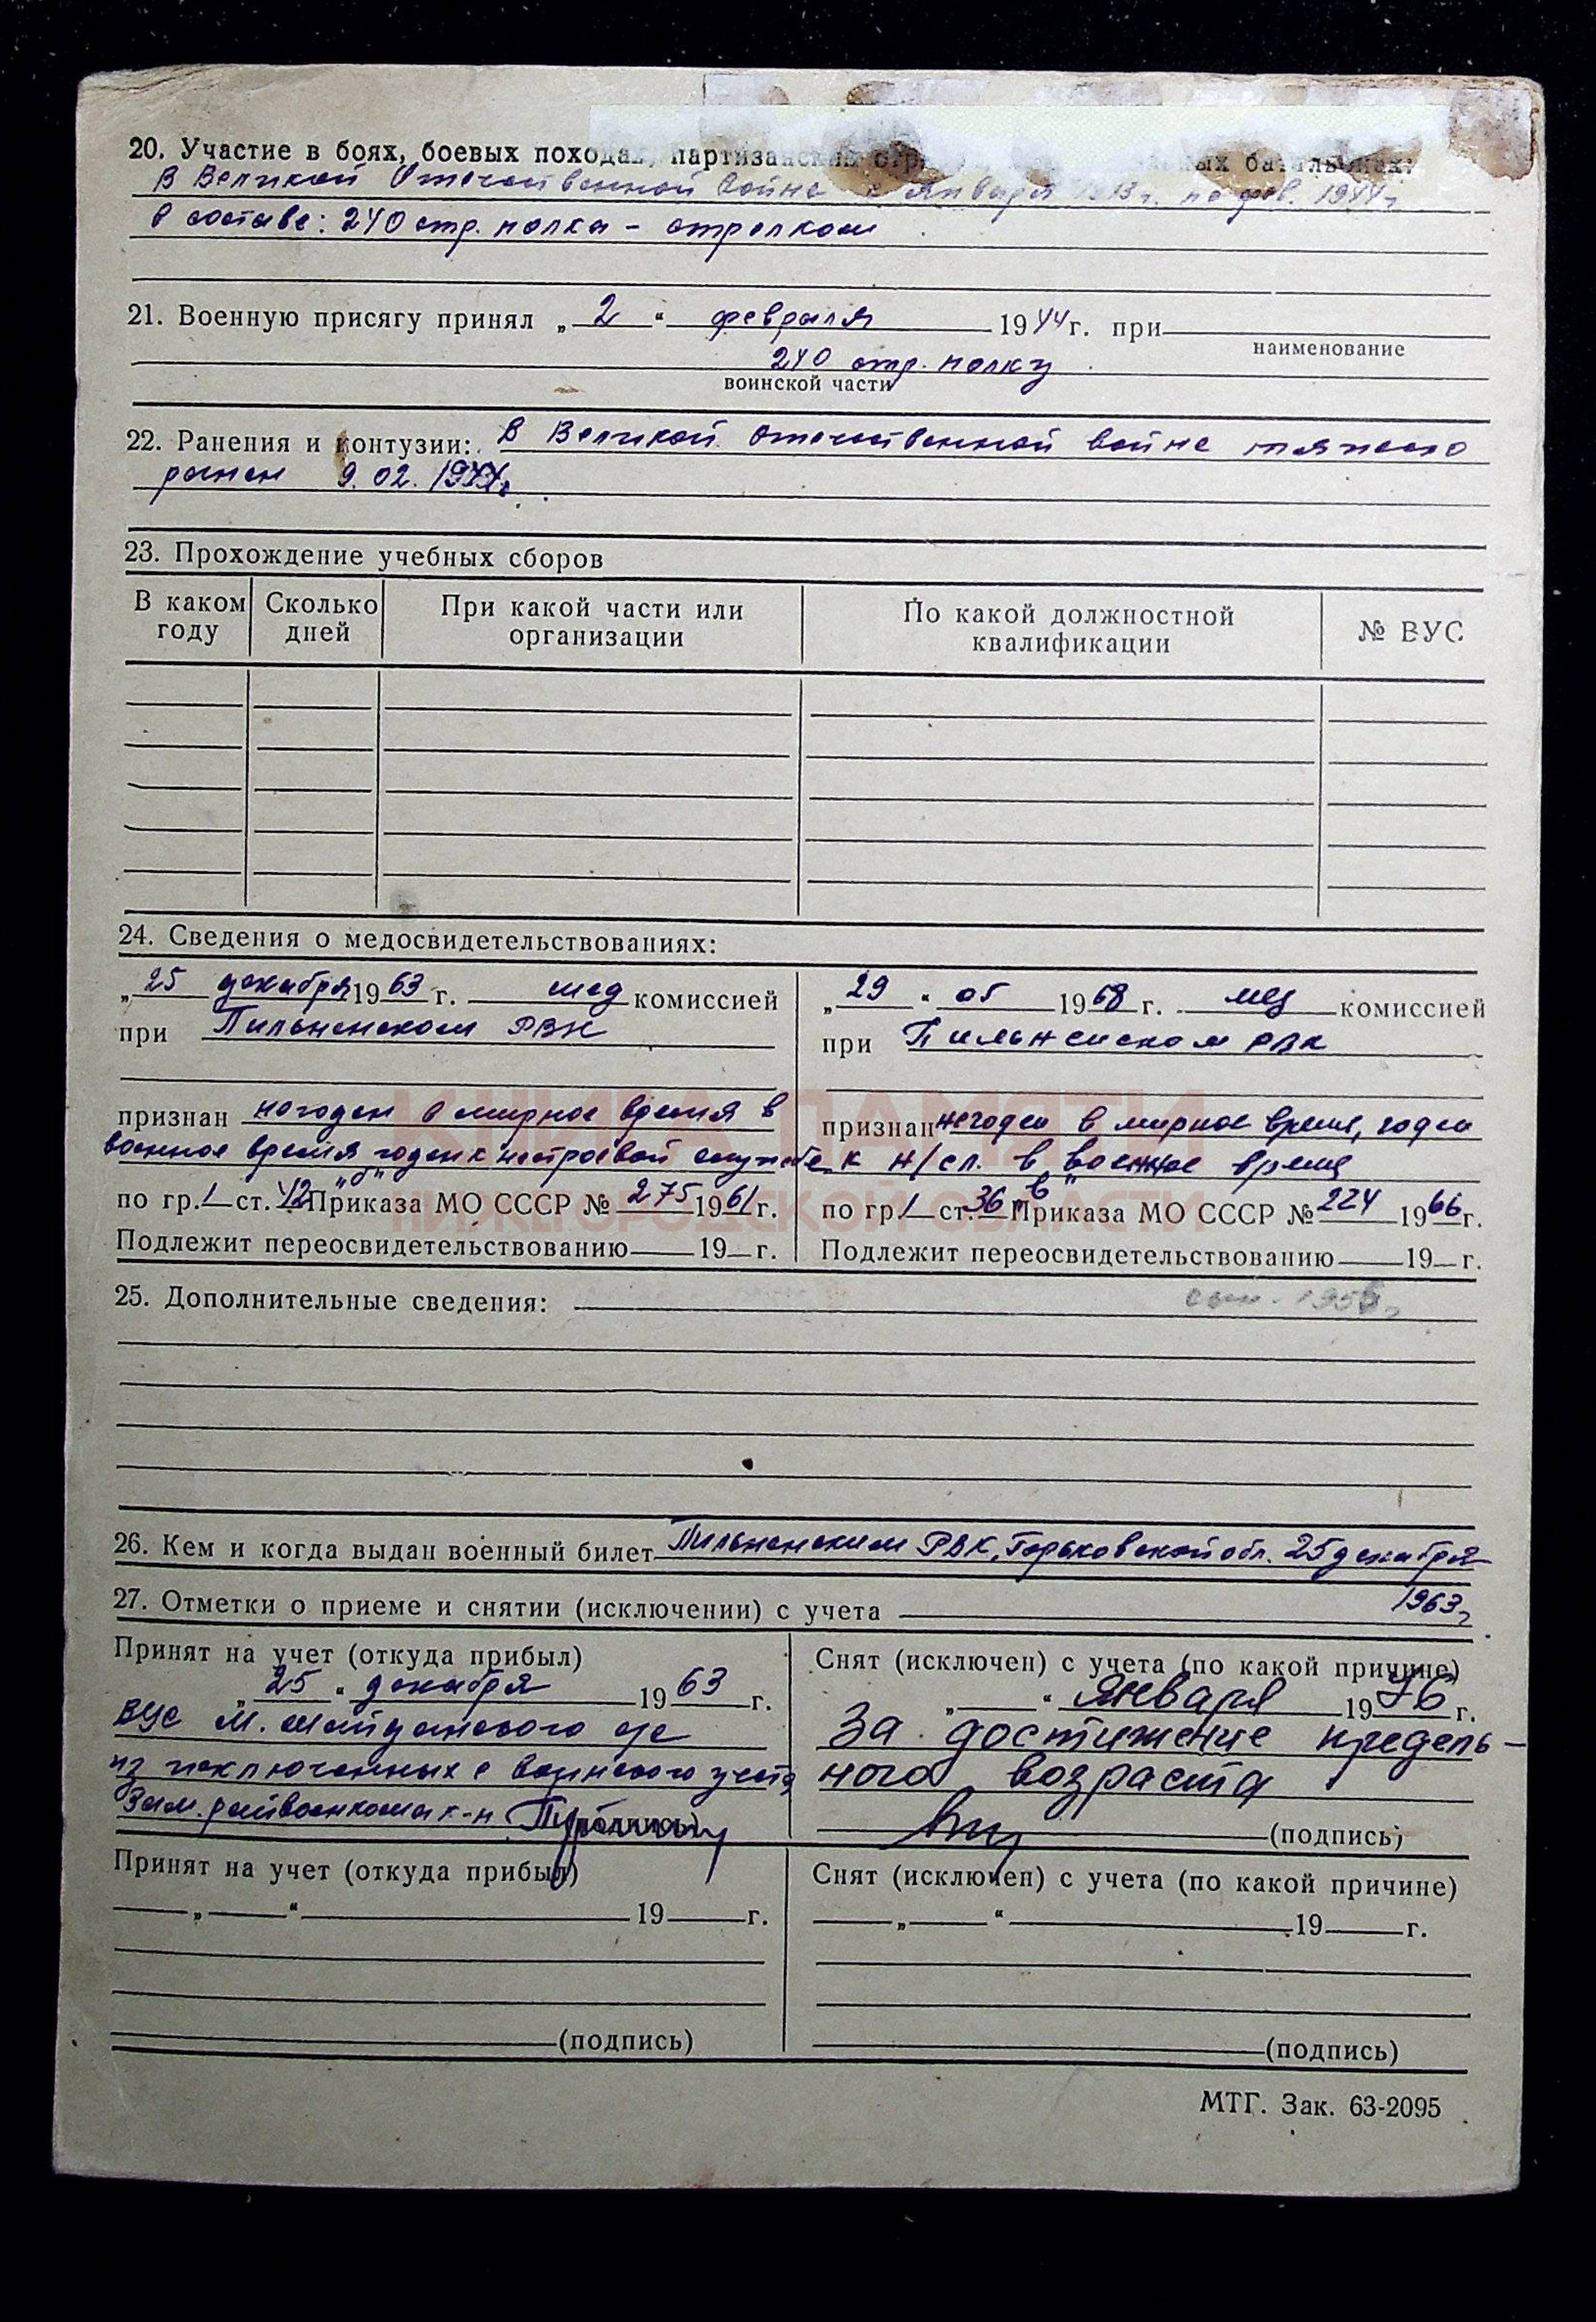 20. Участие в боях, боевых походах, партизанских батальонах:
В Великой Отечественной войне с января 1943г. по фев. 1944г
в составе: 240 стр. полка – стрелком
21. Военную присягу принял „ 2 “ февраля 1944 г. при
наименование
240 стр. полку
воинской части
22. Ранения и контузии: В Великой отечественной войне тяжело
ранен 9.02.1944г.
23. Прохождение учебных сборов
В каком году
Сколько дней
При какой части или организации
По какой должностной квалификации
№ ВУС
24. Сведения о медосвидетельствованиях:
„ 25 декабря 1963 г. мед комиссией
при Пильненском РВК
признан негоден в мирное время в
военное время годен к нестроевой службе
по гр. 1 ст. 42 "б" Приказа МО СССР № 275 1961 г.
Подлежит переосвидетельствованию — 19 — г.
„ 29 “ 05 1968 г. мед комиссией
при Пильненском РВК
признан негоден в мирное время, годен
к н/сл. в военное время
по гр. 1 ст. 36 "в" Приказа МО СССР № 224 1966 г.
Подлежит переосвидетельствованию — 19 — г.
КНИГА ПАМЯТИ
НИЖЕГОРОДСКОЙ ОБЛАСТИ
25. Дополнительные сведения:
26. Кем и когда выдан военный билет Пильненским РВК, Горьковской обл. 25 декабря
1963г
27. Отметки о приеме и снятии (исключении) с учета
Принят на учет (откуда прибыл)
„ 25 “ декабря 1963 г.
ВУС М. Майданского с/с
из исключенных с воинского учета
Зам. райвоенкома к-н (подпись)
Снят (исключен) с учета (по какой причине)
„ “ января 1976 г.
За достижение предель-
ного возраста
(подпись)
Принят на учет (откуда прибыл)
„ “ 19 г.
(подпись)
Снят (исключен) с учета (по какой причине)
„ “ 19 г.
(подпись)
МТГ. Зак. 63-2095